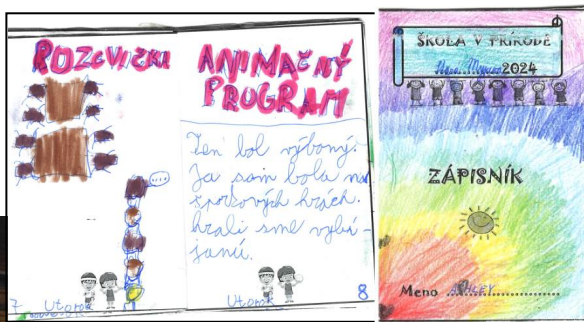 ROZCVIČKA
ANIMAČNÝ
PROGRAM
Ten bol výborný.
Ja som bola na
športových hrách.
hrali sme vybí-
janú.
7 Utorok
Utorok 8
ŠKOLA V PRÍRODE
2024
ZÁPISNÍK
Meno ASHLEY